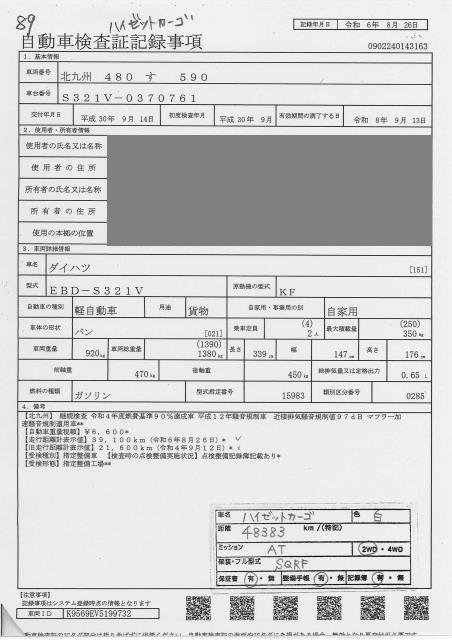 89
ハイゼットカーゴ
記録年月日 令和 6年 8月 26日
自動車検査証記録事項
0902240143163
1. 基本情報
車両番号 北九州 480 す 590
車台番号 S321V-0370761
交付年月日 平成 30年 9月 14日 初度検査年月 平成 30年 9月 有効期間の満了する日 令和 8年 9月 13日
2. 使用者・所有者情報
使用者の氏名又は名称
使用者の住所
所有者の氏名又は名称
所有者の住所
使用の本拠の位置
3. 車両詳細情報
車名 ダイハツ [151]
型式 EBD-S321V 原動機の型式 KF
自動車の種別 軽自動車 用途 貨物 自家用・事業用の別 自家用
車体の形状 バン [021] 乗車定員 (4) 2人 最大積載量 (250) 350kg
車両重量 920kg 車両総重量 (1390) 1380kg 長さ 339cm 幅 147cm 高さ 176cm
前軸重 470kg 後軸重 450kg 総排気量又は定格出力 0.65L
燃料の種類 ガソリン 型式指定番号 15983 類別区分番号 0285
4. 備考
【北九州】 継続検査 令和4年度燃費基準90%達成車 平成12年騒音規制車 近接排気騒音規制値97dB マフラー加
速騒音規制適用車**
【自動車重量税額】¥6,600*
【走行距離計表示値】39,100km (令和6年8月26日)*
【旧走行距離計表示値】21,600km (令和4年9月12日)*
【受検種別】指定整備車 【検査時の点検整備実施状況】点検整備記録簿記載あり*
【受検形態】指定整備工場**
車名 ハイゼットカーゴ 色 白
距離 48383 km/(特記)
ミッション AT 2WD・4WD
架装・フル型式 SQRF
保証書 有・無 整備手帳 有・無 記録簿 有・無
【注意事項】
記録事項はシステム登録時点の情報となります
車両ID K9569EV5199732